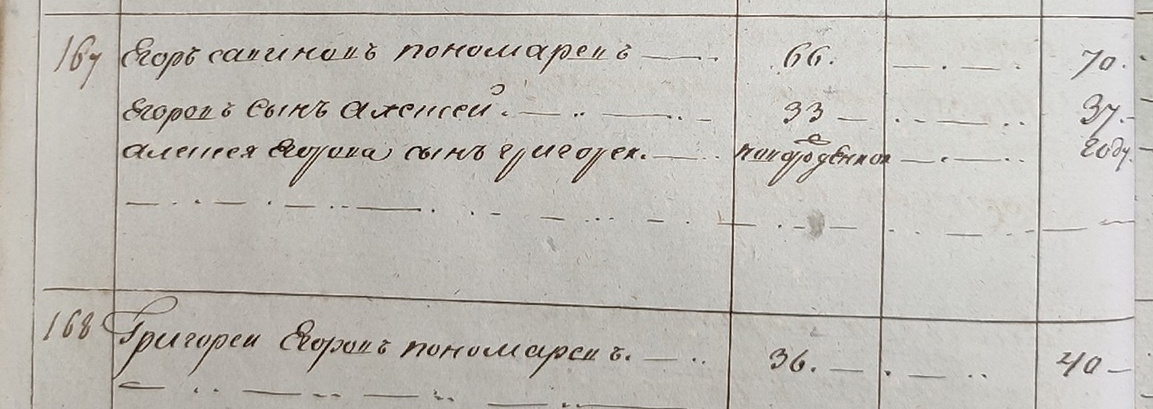 167 Егоръ савиновъ пономаревъ 66. 70.
Егоровъ сынъ алексей. 33 37.
алексея Егорова сынъ григореи. новорожденной году.
168 Григореи Егоровъ пономаревъ. 36. 40